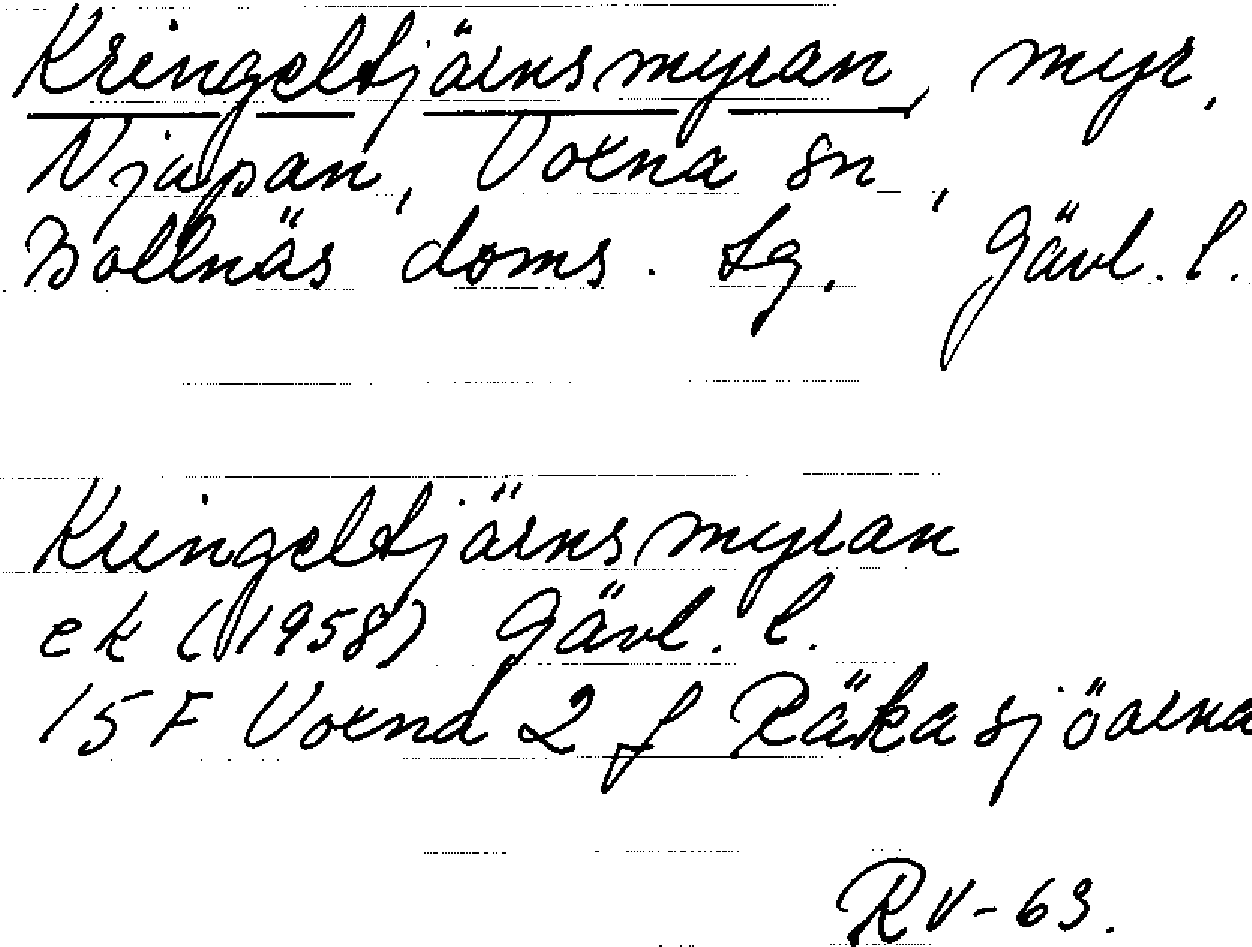 Kringeltjärnsmyran, myr.
Njupan, Voxna sn,
Bollnäs doms. lg. Gävl. l.
Kringeltjärnsmyran
ek (1958) Gävl. l.
15 F Voxna 2 f Räkasjöarna
RV-63.